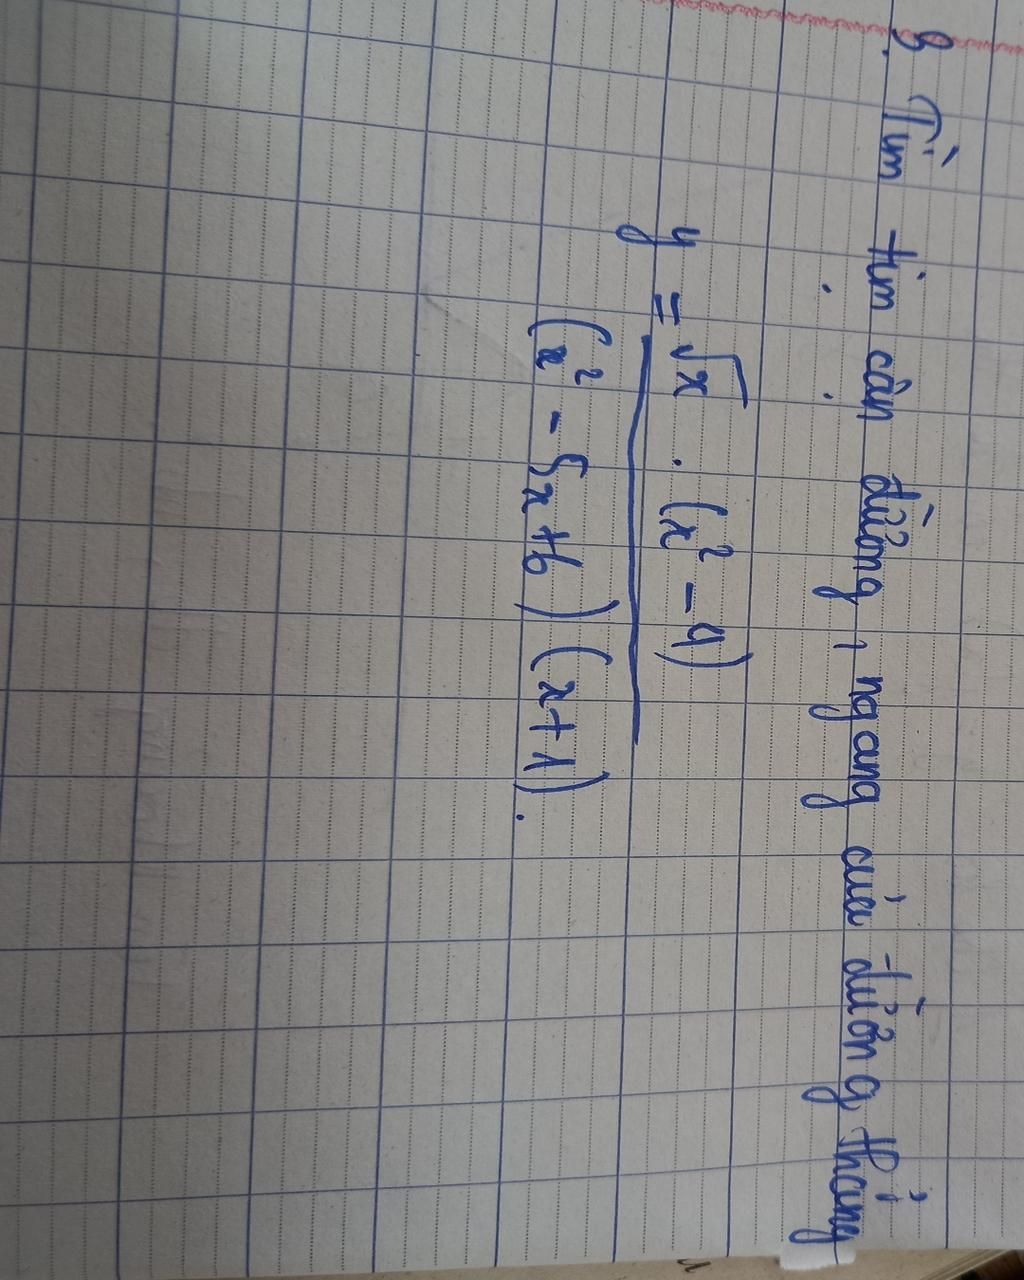 8. Tìm tịm cận đường, ngang của đường thẳng
y = √x . (x² - 9)
(x² - 5x + 6) (x + 1).